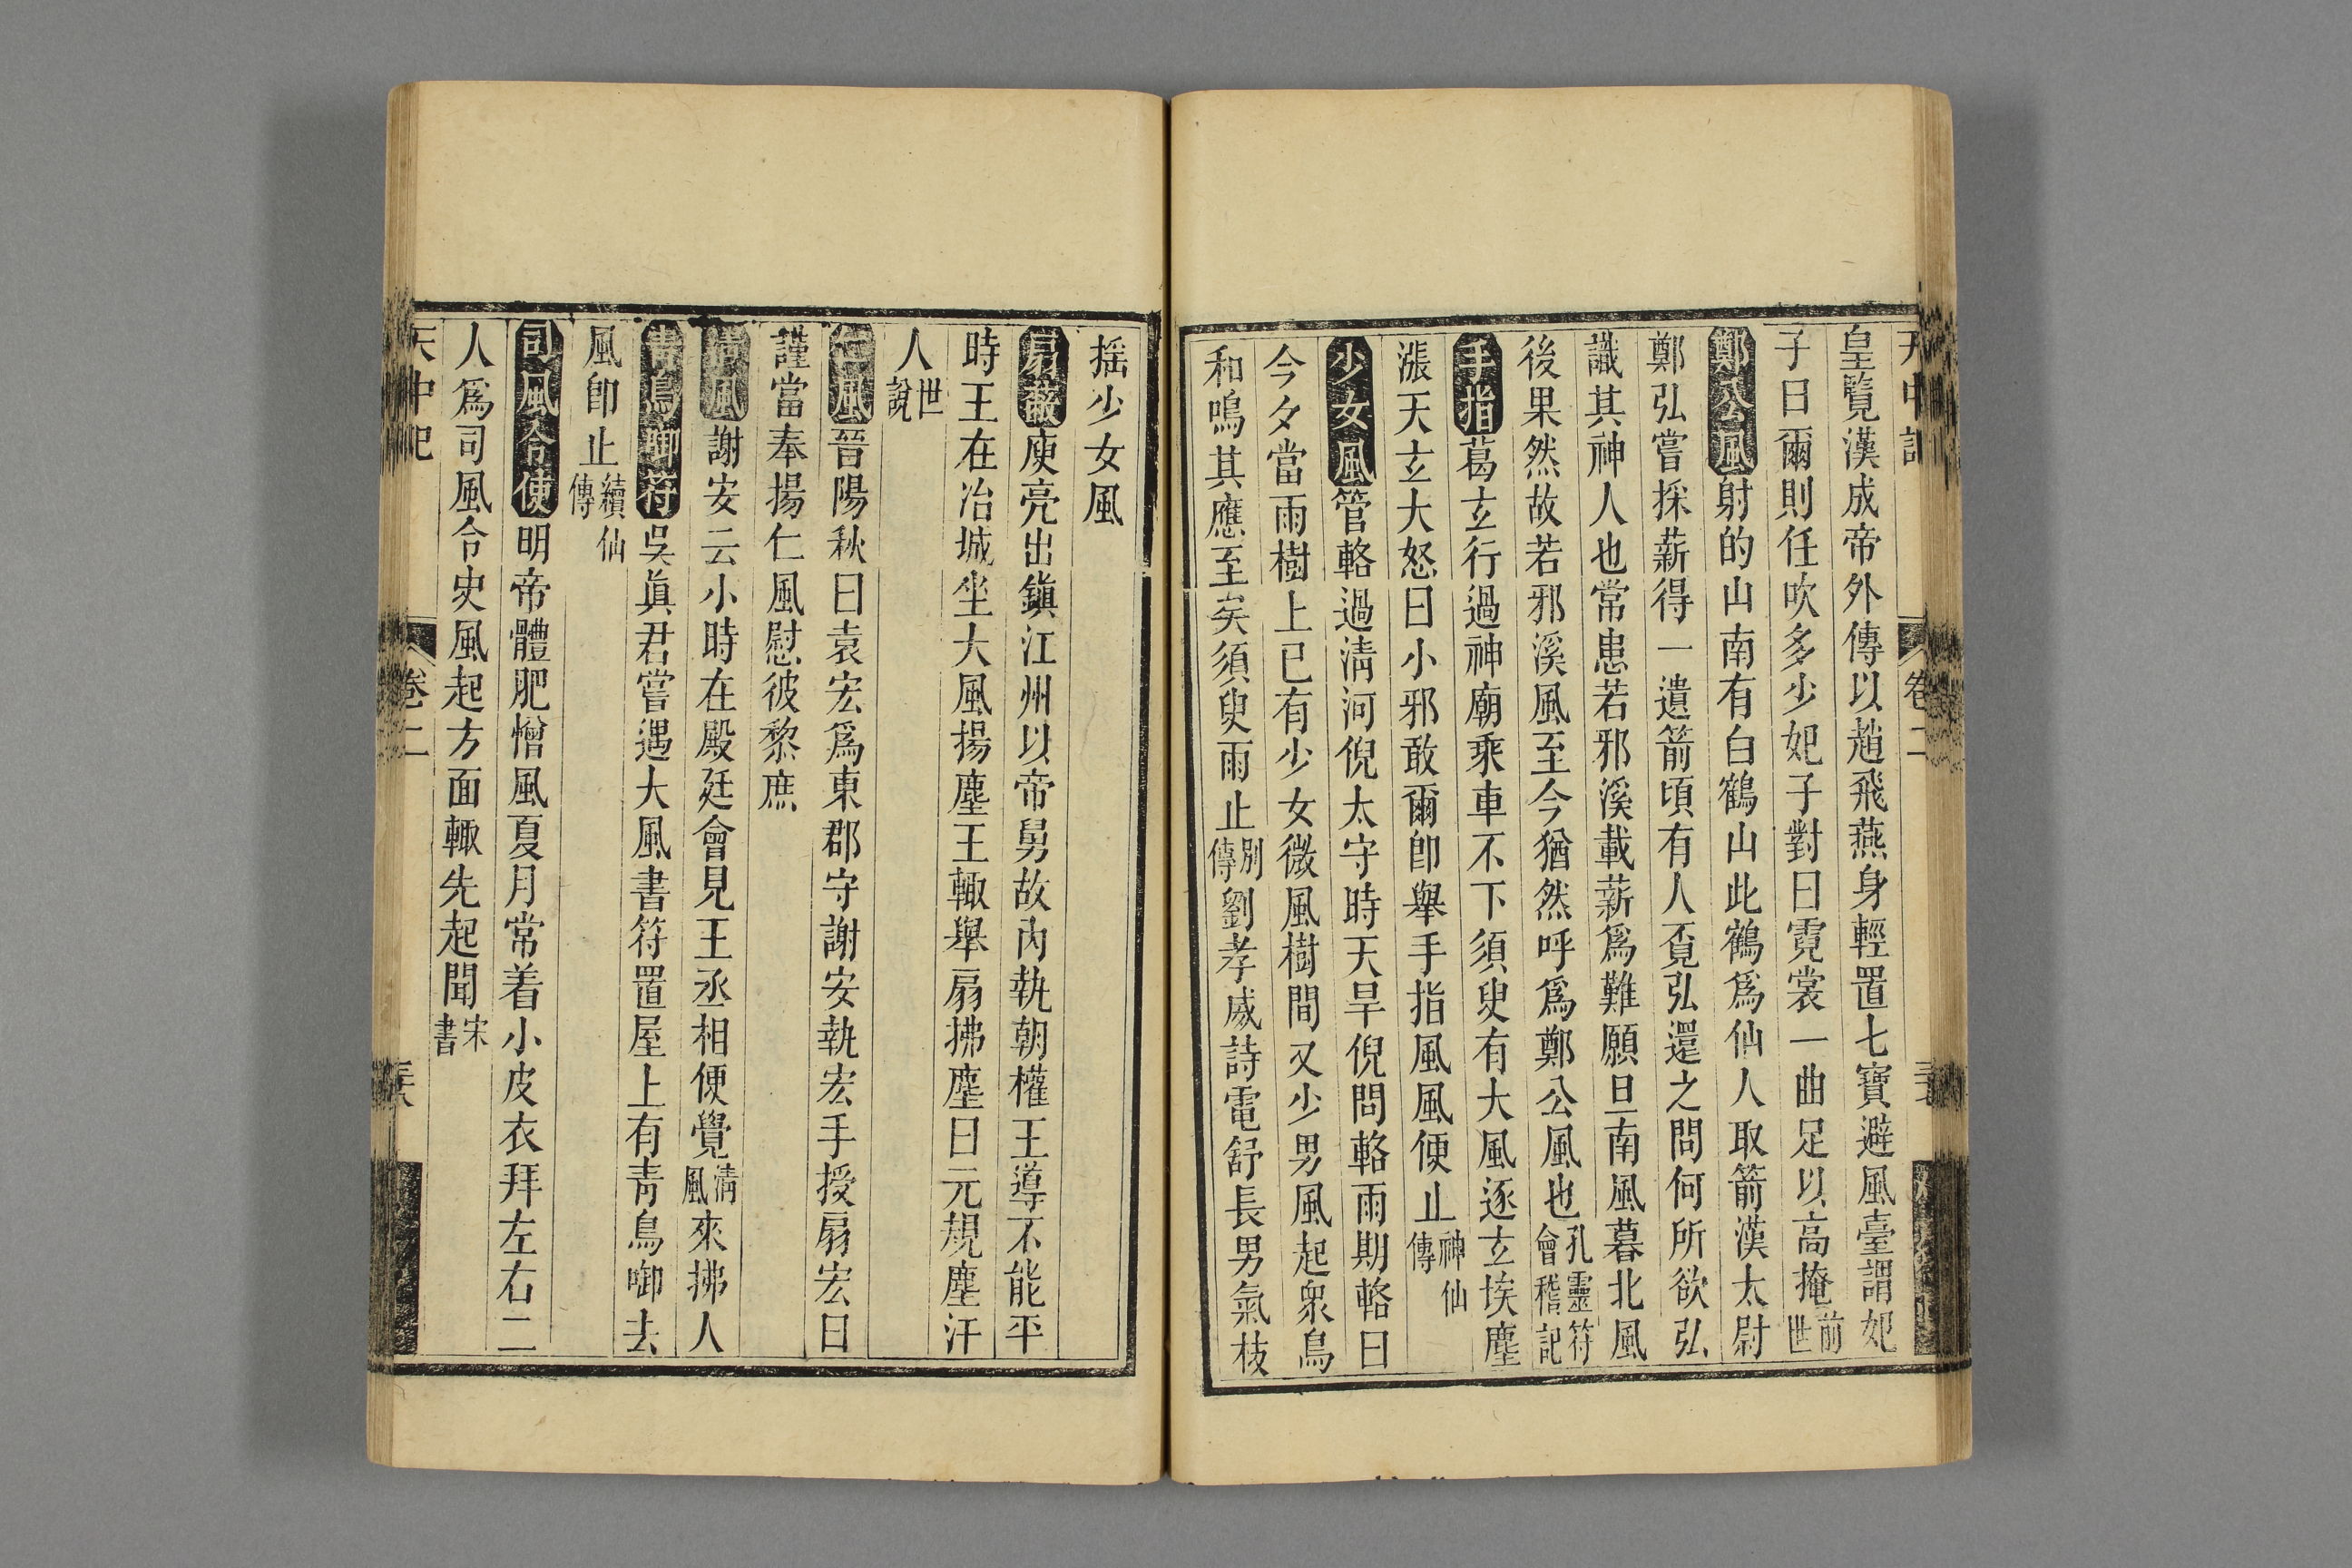 皇覽漢成帝外傳以趙飛燕身輕置七寶避風臺謂妃
子曰爾則任吹多少妃子對曰霓裳一曲足以高掩前世
鄭公風射的山南有白鶴山此鶴爲仙人取箭漢太尉
鄭弘嘗採薪得一遺箭頃有人覓弘還之問何所欲弘
識其神人也常患若邪溪載薪爲難願旦南風暮北風
後果然故若邪溪風至今猶然呼爲鄭公風也孔靈符會稽記
手指葛玄行過神廟乘車不下須臾有大風逐玄埃塵
漲天玄大怒曰小邪敢爾卽舉手指風風便止神仙傳
少女風管輅過淸河倪太守時天旱倪問輅雨期輅曰
今夕當雨樹上已有少女微風樹間又少男風起衆鳥
和鳴其應至矣須臾雨止別傳劉孝威詩電舒長男氣枝
卷二
搖少女風
扇蔽庾亮出鎭江州以帝舅故內執朝權王導不能平
時王在冶城坐大風揚塵王輙舉扇拂塵曰元規塵汙
人世說
仁風晉陽秋曰袁宏爲東郡守謝安執宏手授扇宏曰
謹當奉揚仁風慰彼黎庶
淸風謝安云小時在殿廷會見王丞相便覺淸風來拂人
靑鳥啣符吳眞君嘗遇大風書符置屋上有靑鳥啣去
風卽止續仙傳
司風令使明帝體肥憎風夏月常着小皮衣拜左右二
人爲司風令史風起方面輙先起聞宋書
天中記
卷二